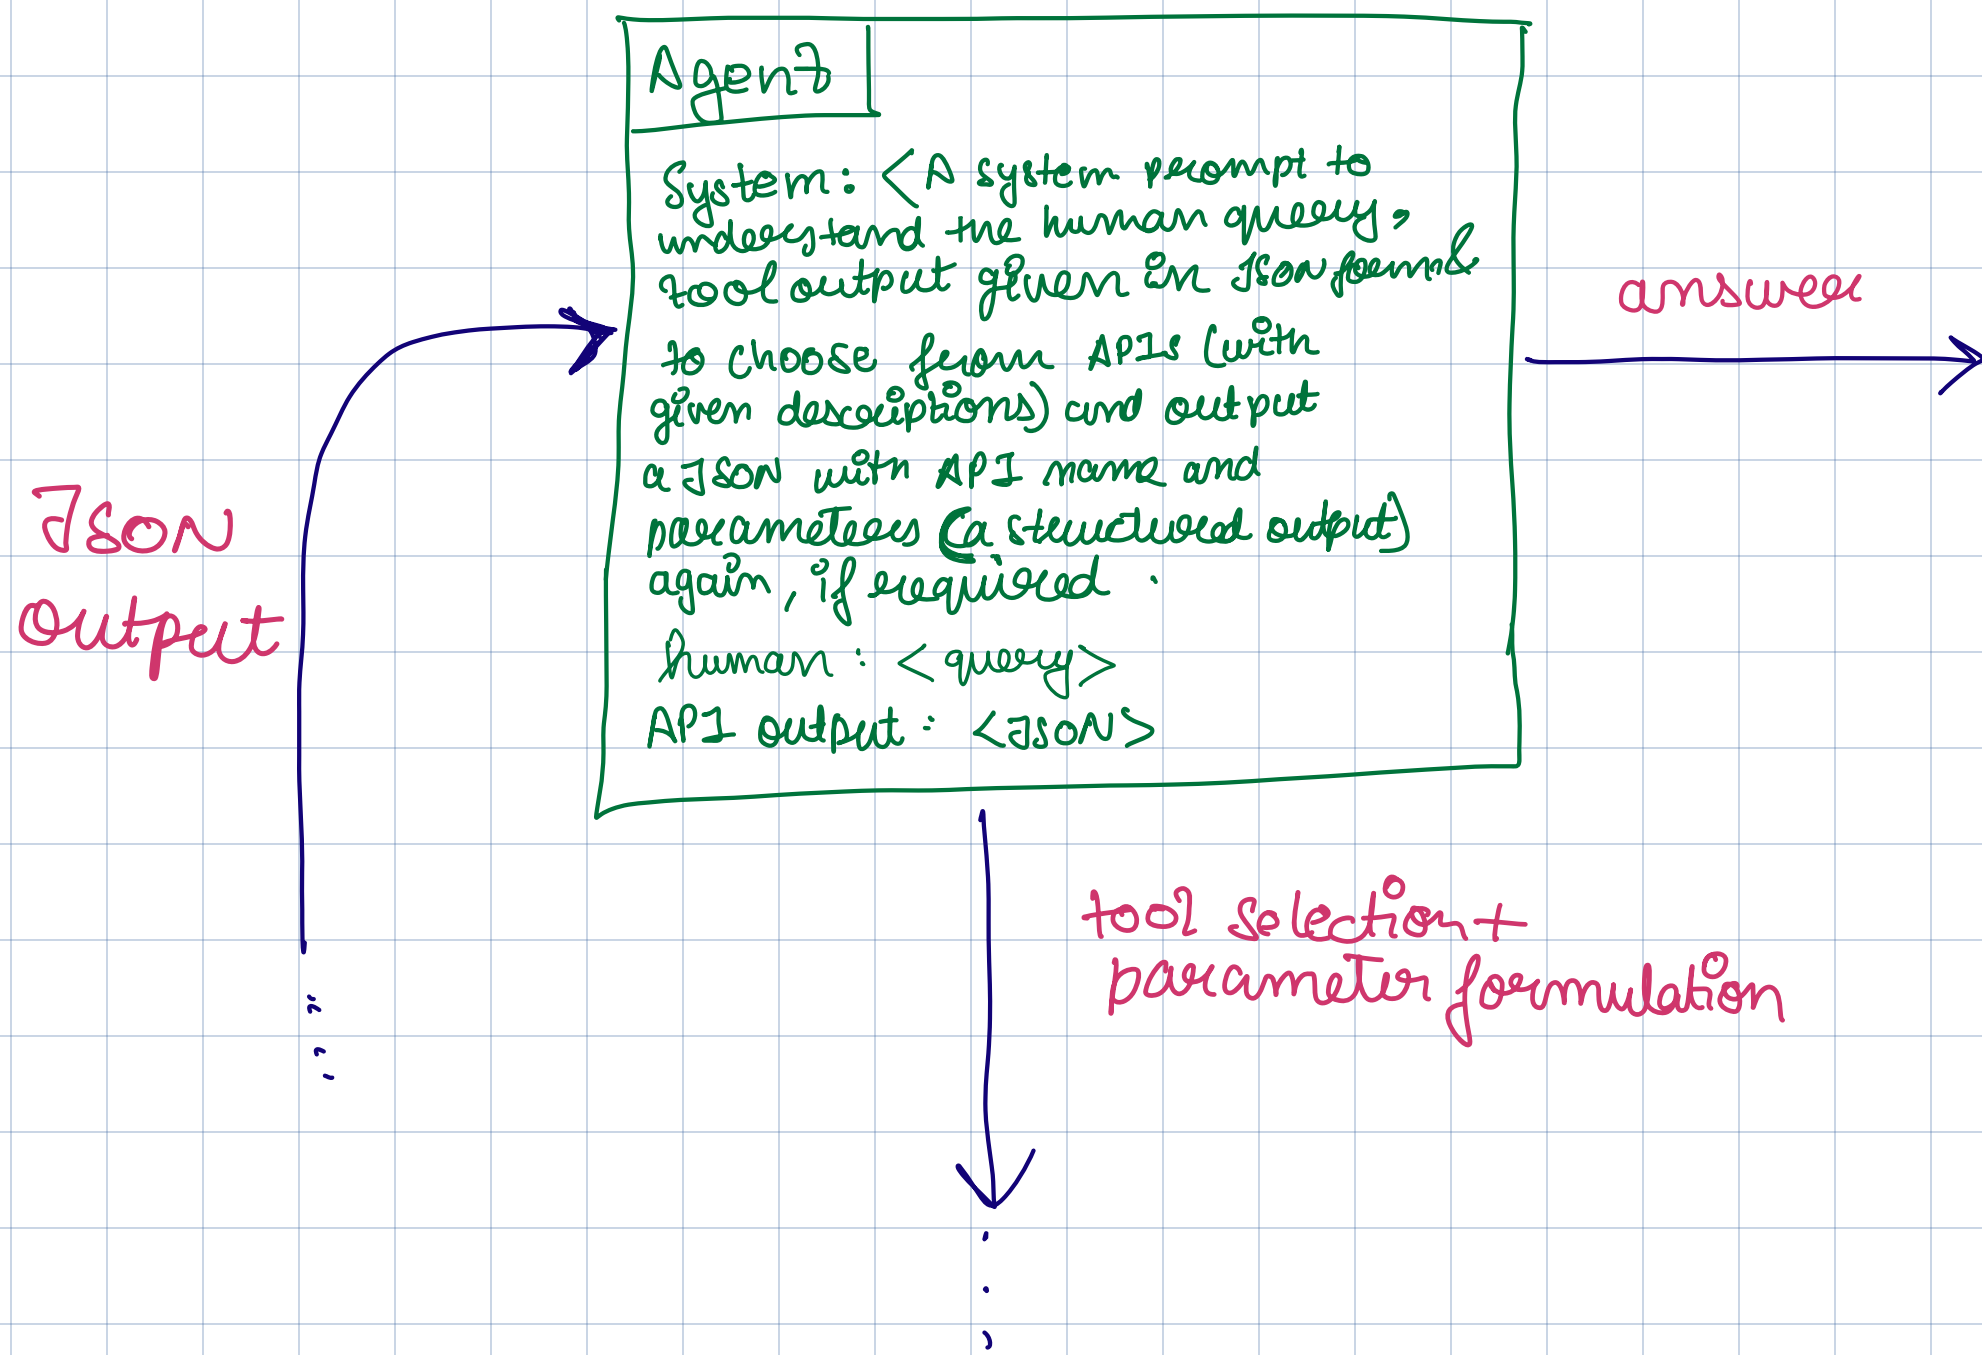 Agent
System: <A system prompt to
understand the human query,
tool output given in JSON form &
to choose from APIs (with
given descriptions) and output
a JSON with API name and
parameters (a structured output)
again, if required.
human: <query>
API output: <JSON>
answer
JSON
output
tool selection +
parameter formulation